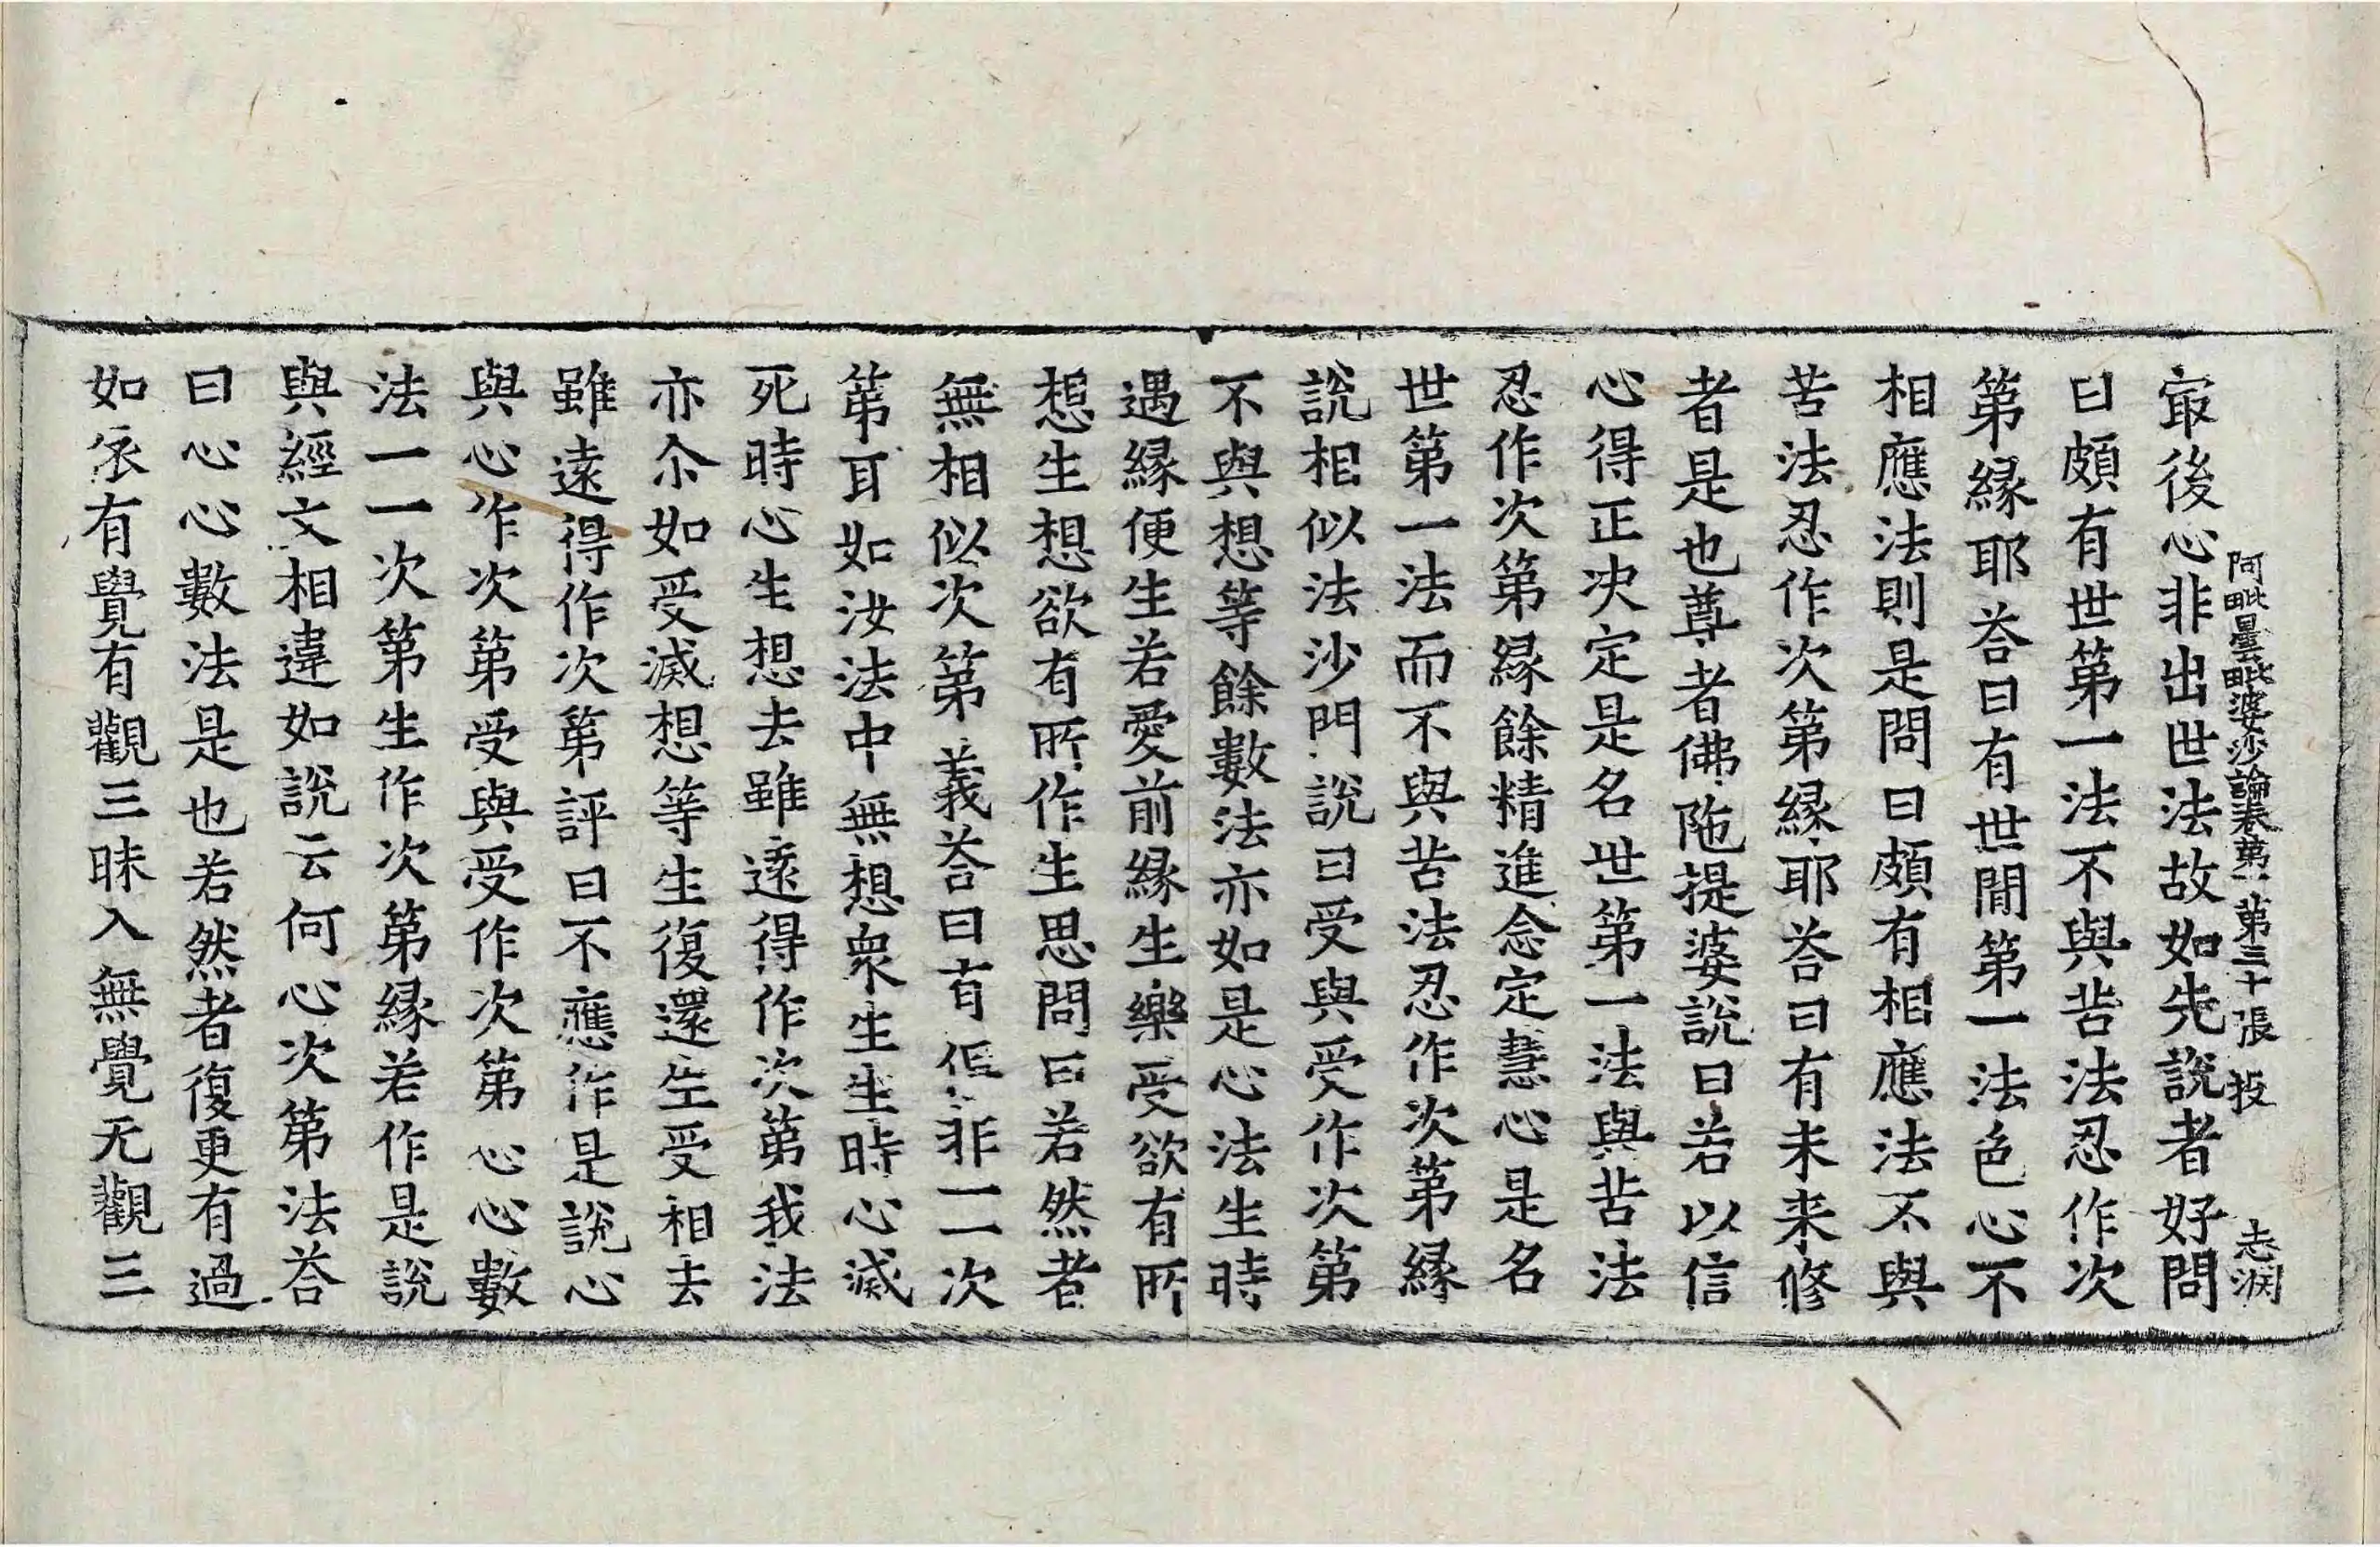 阿毗曇毗婆沙論卷第一 第三十張 投 志淵
㝡後心非出世法故如先說者好問
曰頗有世第一法不與苦法忍作次
第緣耶荅曰有世間第一法色心不
相應法則是問曰頗有相應法不與
苦法忍作次第緣耶荅曰有未来修
者是也尊者佛陁提婆說曰若以信
心得正决定是名世第一法與苦法
忍作次第緣餘精進念定慧心是名
世第一法而不與苦法忍作次第緣
說相似法沙門說曰受與受作次第
不與想等餘數法亦如是心法生時
遇緣便生若愛前緣生樂受欲有所
想生想欲有所作生思問曰若然者
無相似次第義荅曰有但非一一次
第耳如汝法中無想衆生生時心滅
死時心生想去雖遠得作次第我法
亦尒如受滅想等生復還生受相去
雖遠得作次第評曰不應作是說心
與心作次第受與受作次第心心數
法一一次第生作次第緣若作是說
與經文相違如說云何心次第法荅
曰心心數法是也若然者復更有過
如依有覺有觀三昧入無覺无觀三